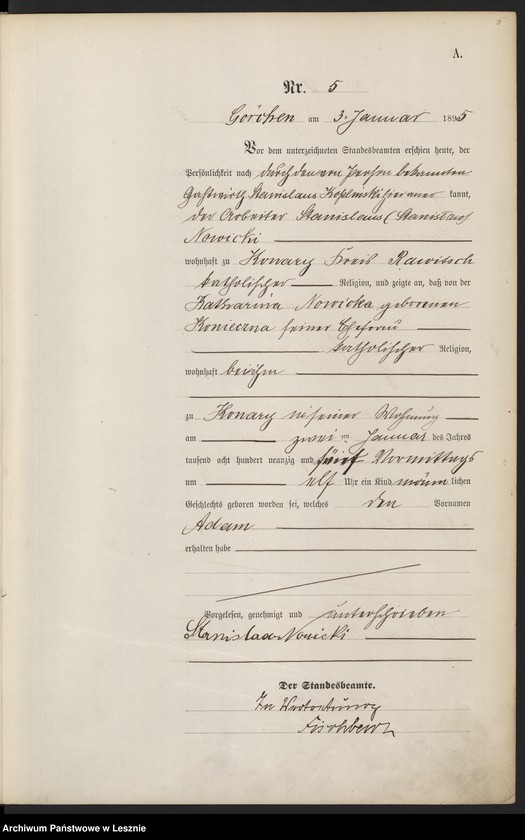 5
A.
Nr. 5
Görchen am 3. Januar 1895
Vor dem unterzeichneten Standesbeamten erschien heute, der
Persönlichkeit nach durch den von Person bekannten
Gastwirth Stanislaus kannt,
der Arbeiter Stanislaus (Stanislaw)
Nowicki
wohnhaft zu Konary Kreis Rawitsch
katholischer Religion, und zeigte an, daß von der
Katharina Nowicka geborenen
Konieczna seiner Ehefrau
katholischer Religion,
wohnhaft bei ihm
zu Konary in seiner Wohnung
am zwei ten Januar des Jahres
tausend acht hundert neunzig und fünf Vormittags
um elf Uhr ein Kind männlichen
Geschlechts geboren worden sei, welches den Vornamen
Adam
erhalten habe
Vorgelesen, genehmigt und unterschrieben
Stanisław Nowicki
Der Standesbeamte.
In Vertretung
Archiwum Państwowe w Lesznie